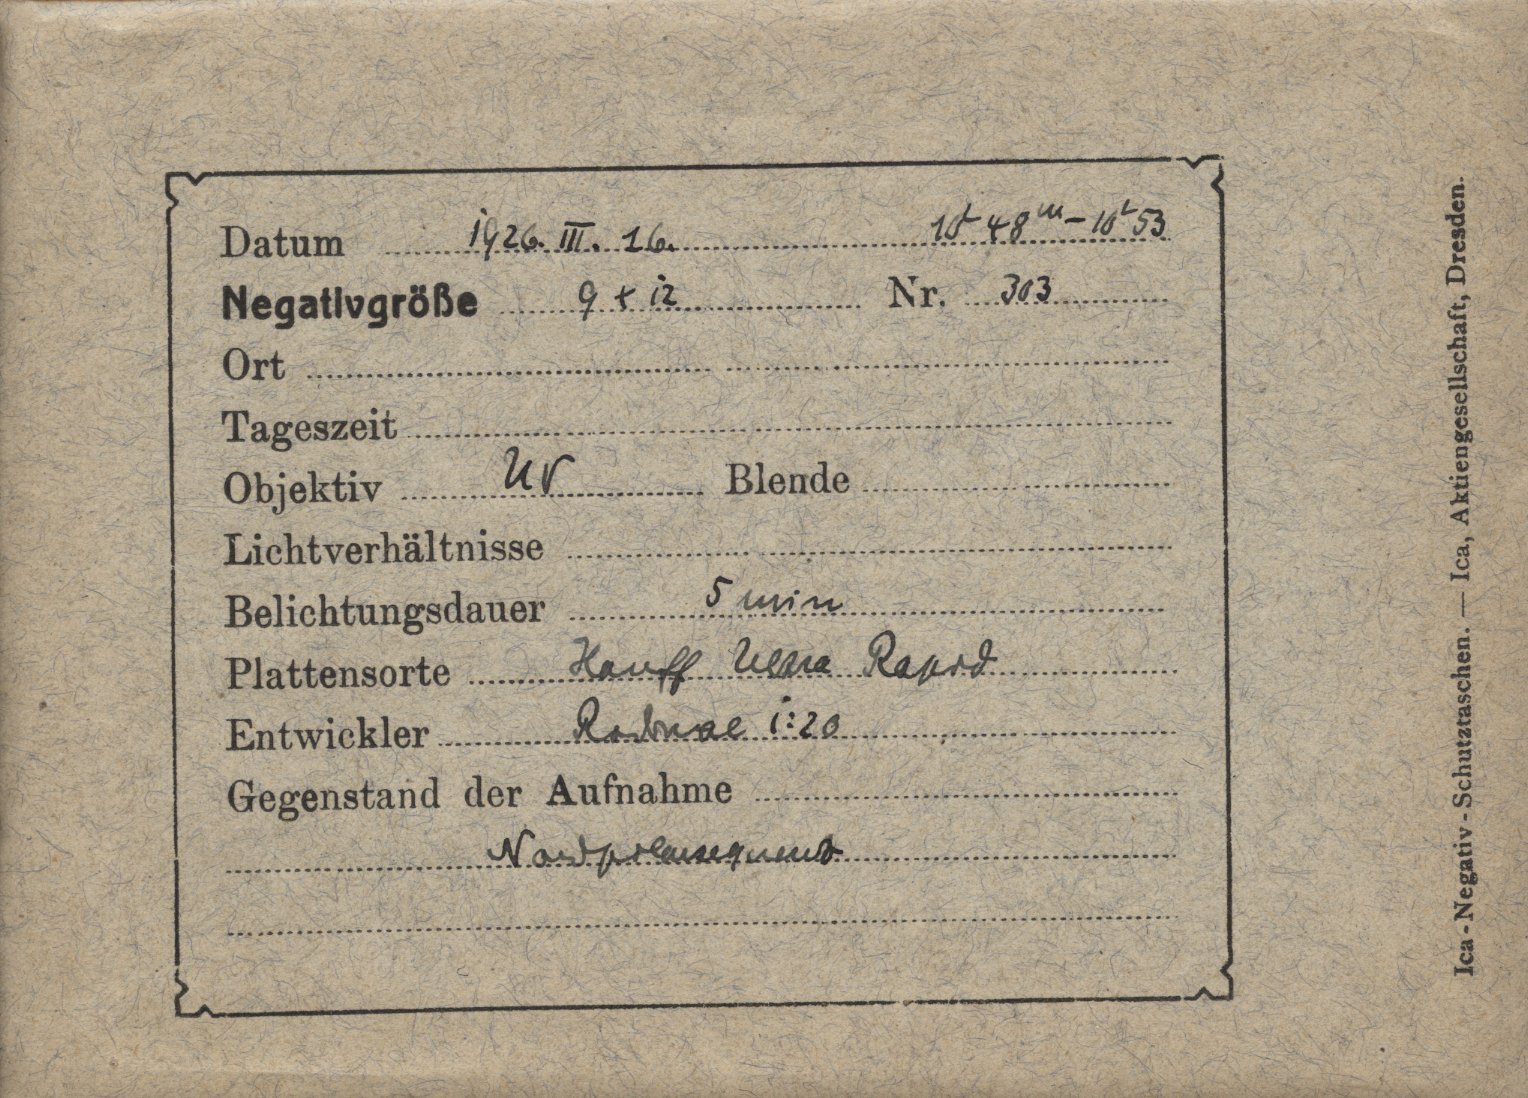 Datum 1926. III. 16. 10h 48m – 10h 53
Negativgröße 9 x 12 Nr. 303
Ort
Tageszeit
Objektiv UV Blende
Lichtverhältnisse
Belichtungsdauer 5 min
Plattensorte Hauff Ultra Rapid
Entwickler Rodinal 1:20
Gegenstand der Aufnahme
Nordpolarsequenz
Ica-Negativ-Schutztaschen. — Ica, Aktiengesellschaft, Dresden.